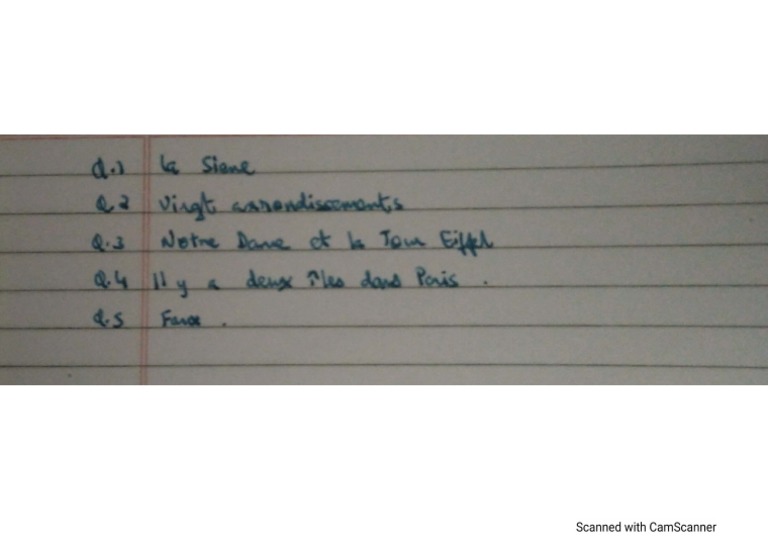 Q.1 La Siene
Q.2 Virgt arrondissements
Q.3 Notre Dame et la Tour Eiffel
Q.4 Il y a deux îles dans Paris.
Q.5 Faux.
Scanned with CamScanner